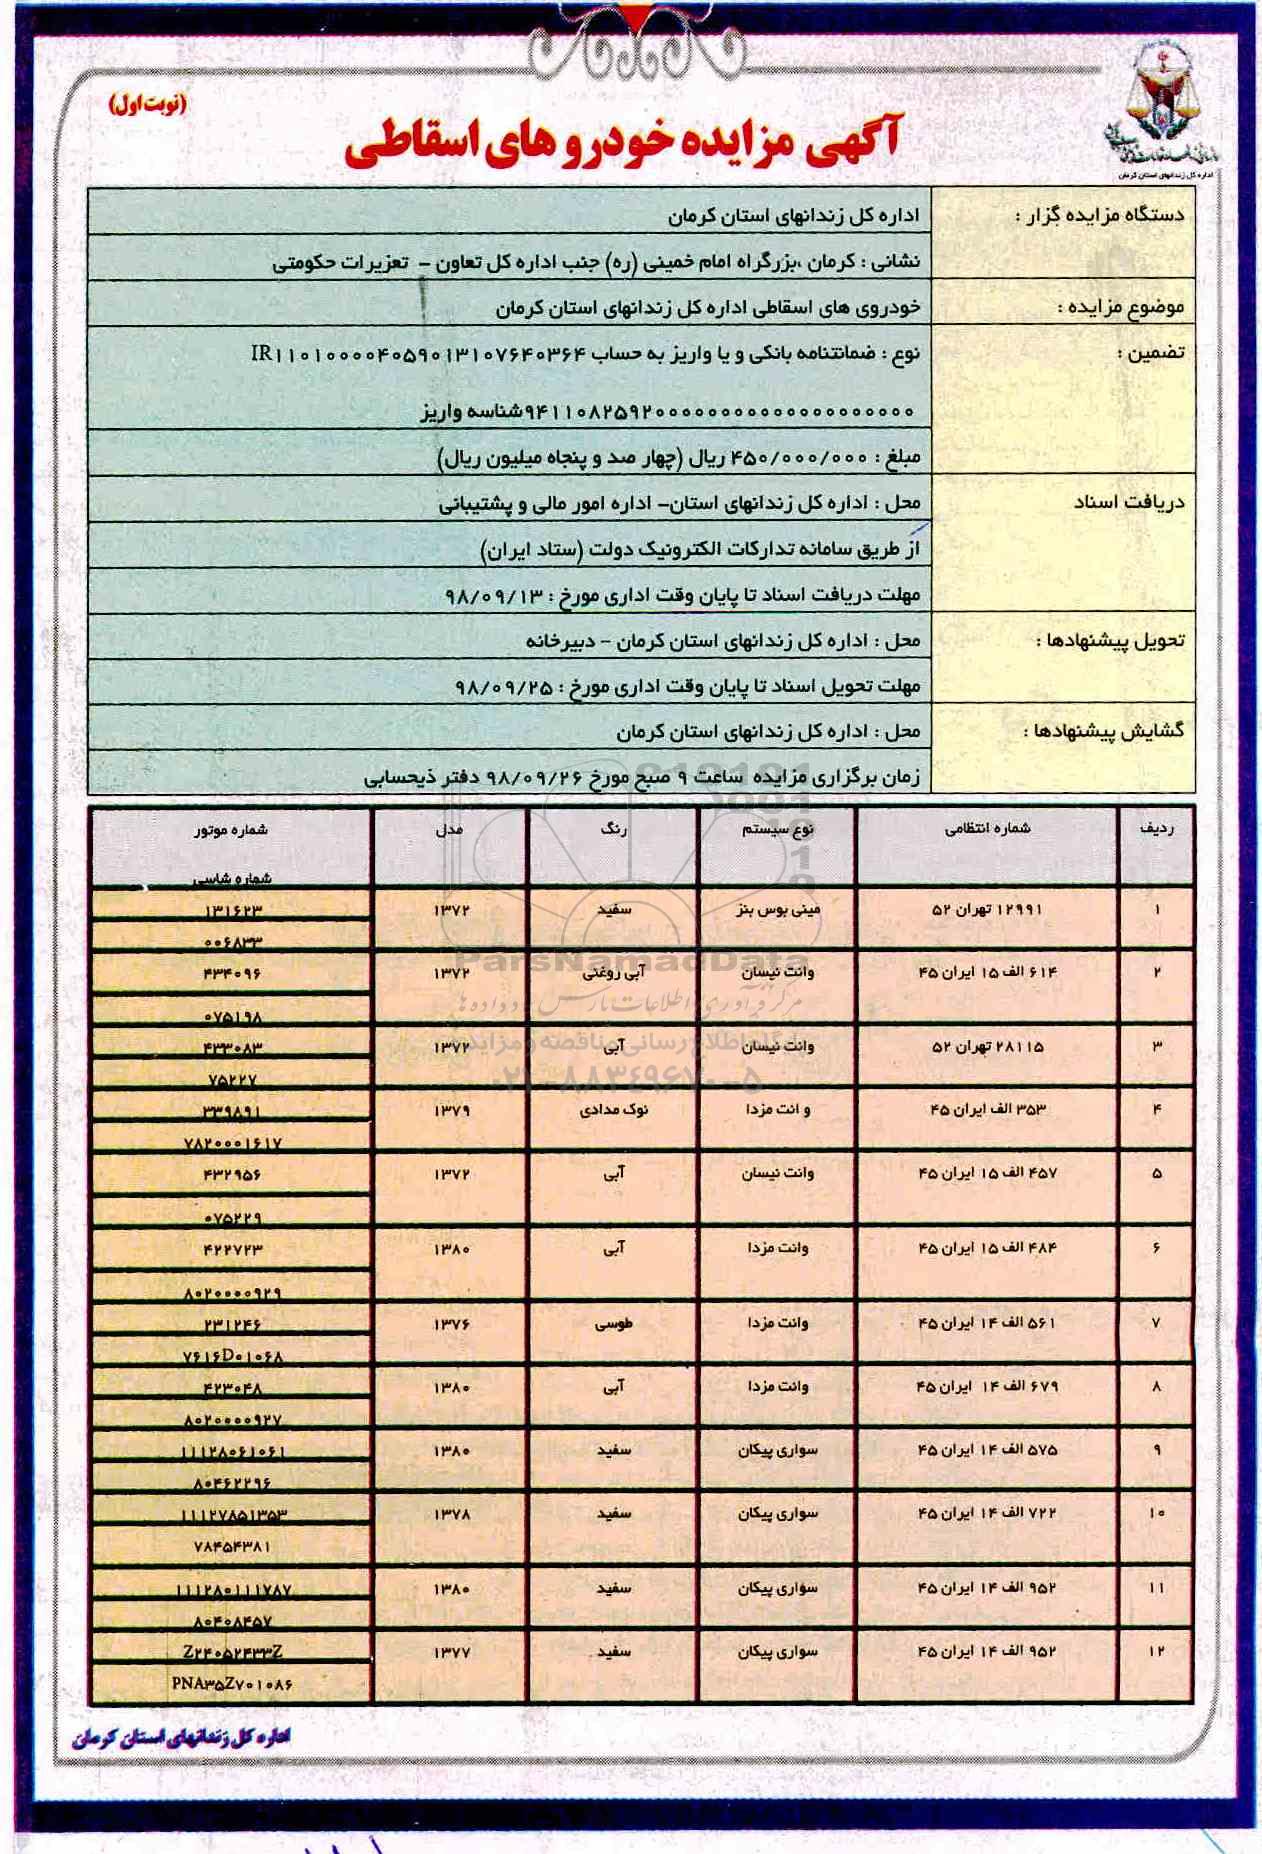 (نوبت اول)
آگهی مزایده خودرو های اسقاطی
اداره کل زندانهای استان کرمان
دستگاه مزایده گزار : اداره کل زندانهای استان کرمان
نشانی : کرمان ،بزرگراه امام خمینی (ره) جنب اداره کل تعاون – تعزیرات حکومتی
موضوع مزایده : خودروی های اسقاطی اداره کل زندانهای استان کرمان
تضمین : نوع : ضمانتنامه بانکی و یا واریز به حساب IR۱۱۰۱۰۰۰۰۴۰۵۹۰۱۳۱۰۷۶۴۰۳۶۴
شناسه واریز
مبلغ : ۴۵۰/۰۰۰/۰۰۰ ریال (چهار صد و پنجاه میلیون ریال)
دریافت اسناد محل : اداره کل زندانهای استان– اداره امور مالی و پشتیبانی
از طریق سامانه تدارکات الکترونیک دولت (ستاد ایران)
مهلت دریافت اسناد تا پایان وقت اداری مورخ : ۹۸/۰۹/۱۳
تحویل پیشنهادها : محل : اداره کل زندانهای استان کرمان – دبیرخانه
مهلت تحویل اسناد تا پایان وقت اداری مورخ : ۹۸/۰۹/۲۵
گشایش پیشنهادها : محل : اداره کل زندانهای استان کرمان
زمان برگزاری مزایده ساعت ۹ صبح مورخ ۹۸/۰۹/۲۶ دفتر ذیحسابی
ردیف شماره انتظامی نوع سیستم رنگ مدل شماره موتور
شماره شاسی
۱ ۱۲۹۹۱ تهران ۵۲ مینی بوس بنز سفید ۱۳۷۲ ۱۳۱۶۲۳
۰۰۶۸۳۳
۲ ۶۱۴ الف ۱۵ ایران ۴۵ وانت نیسان آبی روغنی ۱۳۷۲ ۴۳۴۰۹۶
۰۷۵۱۹۸
۳ ۲۸۱۱۵ تهران ۵۲ وانت نیسان آبی ۱۳۷۲ ۴۳۳۰۸۳
۷۵۲۲۷
۴ ۳۵۳ الف ایران ۴۵ و انت مزدا نوک مدادی ۱۳۷۹ ۳۳۹۸۹۱
۷۸۲۰۰۰۱۶۱۷
۵ ۴۵۷ الف ۱۵ ایران ۴۵ وانت نیسان آبی ۱۳۷۲ ۴۳۲۹۵۶
۰۷۵۲۲۹
۶ ۴۸۴ الف ۱۵ ایران ۴۵ وانت مزدا آبی ۱۳۸۰ ۴۲۲۷۲۳
۸۰۲۰۰۰۰۹۲۹
۷ ۵۶۱ الف ۱۴ ایران ۴۵ وانت مزدا طوسی ۱۳۷۶ ۲۳۱۲۴۶
۷۶۱۶D۰۱۰۶۸
۸ ۶۷۹ الف ۱۴ ایران ۴۵ وانت مزدا آبی ۱۳۸۰ ۴۲۳۰۴۸
۸۰۲۰۰۰۰۹۲۷
۹ ۵۷۵ الف ۱۴ ایران ۴۵ سواری پیکان سفید ۱۳۸۰ ۱۱۱۲۸۰۶۱۰۶۱
۸۰۴۶۲۲۹۶
۱۰ ۷۲۲ الف ۱۴ ایران ۴۵ سواری پیکان سفید ۱۳۷۸ ۱۱۱۲۷۸۵۱۳۵۳
۷۸۴۵۴۳۸۱
۱۱ ۹۵۲ الف ۱۴ ایران ۴۵ سواری پیکان سفید ۱۳۸۰ ۱۱۱۲۸۰۱۱۱۷۸۷
۸۰۴۰۸۴۵۷
۱۲ ۹۵۲ الف ۱۴ ایران ۴۵ سواری پیکان سفید ۱۳۷۷ Z۲۴۰۵۲۴۳۳Z
PNA۳۵Z۷۰۱۰۸۶
ParsNamadData
پایگاه اطلاع رسانی مناقصه و مزایده
۰۲۱-۸۸۳۴۹۶۷۰-۵
اداره کل زندانهای استان کرمان